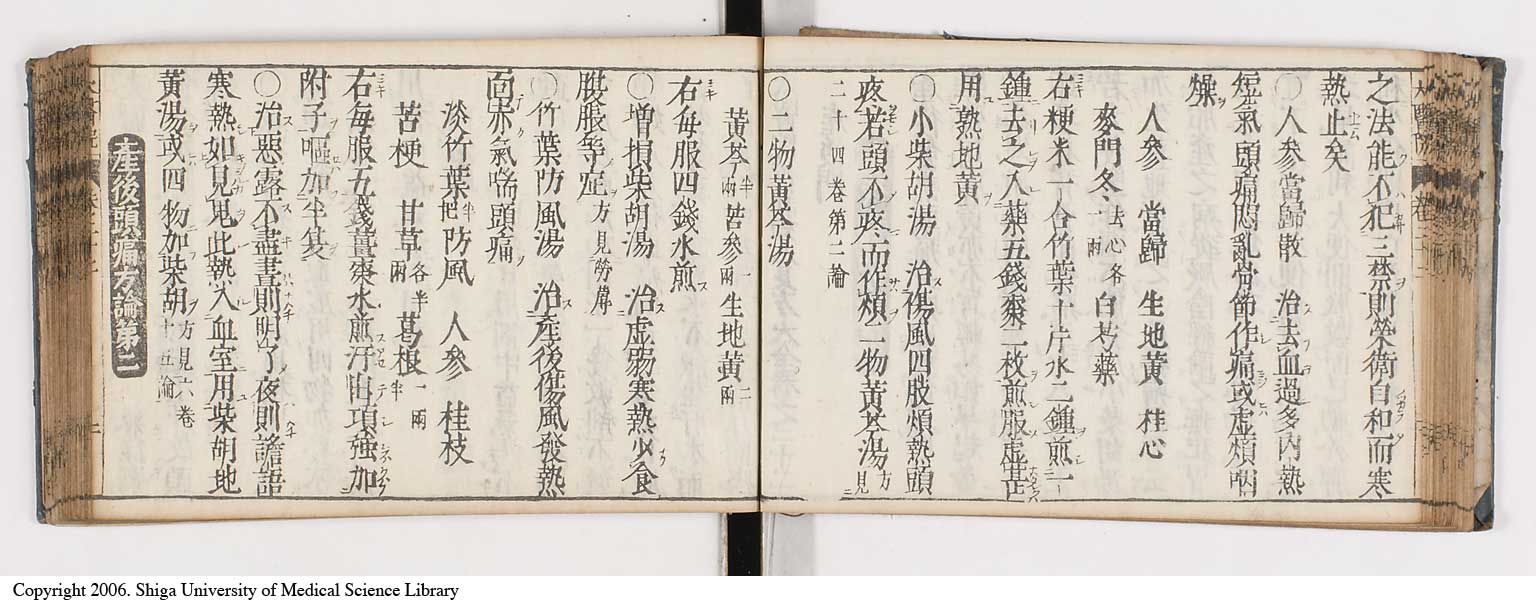 之法能不犯三禁則榮衛自和而寒
熱止矣
〇人參當歸散 治去血過多內熱
短氣頭痛悶亂骨節作痛或虛煩咽
燥
人參 當歸 生地黃 桂心
麥門冬去心各一兩 白芍藥
右粳米一合竹葉十片水二鍾煎一
鍾去之入藥五錢棗二枚煎服虛甚
用熟地黃
〇小柴胡湯 治傷風四肢煩熱頭
疼若頭不疼而作煩二物黃芩湯方見
二十四卷第二論
〇二物黃芩湯
黃芩半兩 苦參一兩 生地黃二兩
右每服四錢水煎
〇增損柴胡湯 治虛弱寒熱少食
腹脹等症方見勞瘵
〇竹葉防風湯 治產後傷風發熱
面赤氣喘頭痛
淡竹葉半把 防風 人參 桂枝
苦梗 甘草各半兩 葛根一兩半
右每服五錢薑棗水煎汗出項強加
附子嘔加半夏
〇治惡露不盡晝則明了夜則譫語
寒熱如見鬼此熱入血室用柴胡地
黃湯或四物加柴胡方見六卷十五論
產後頭痛方論第二
Copyright 2006. Shiga University of Medical Science Library